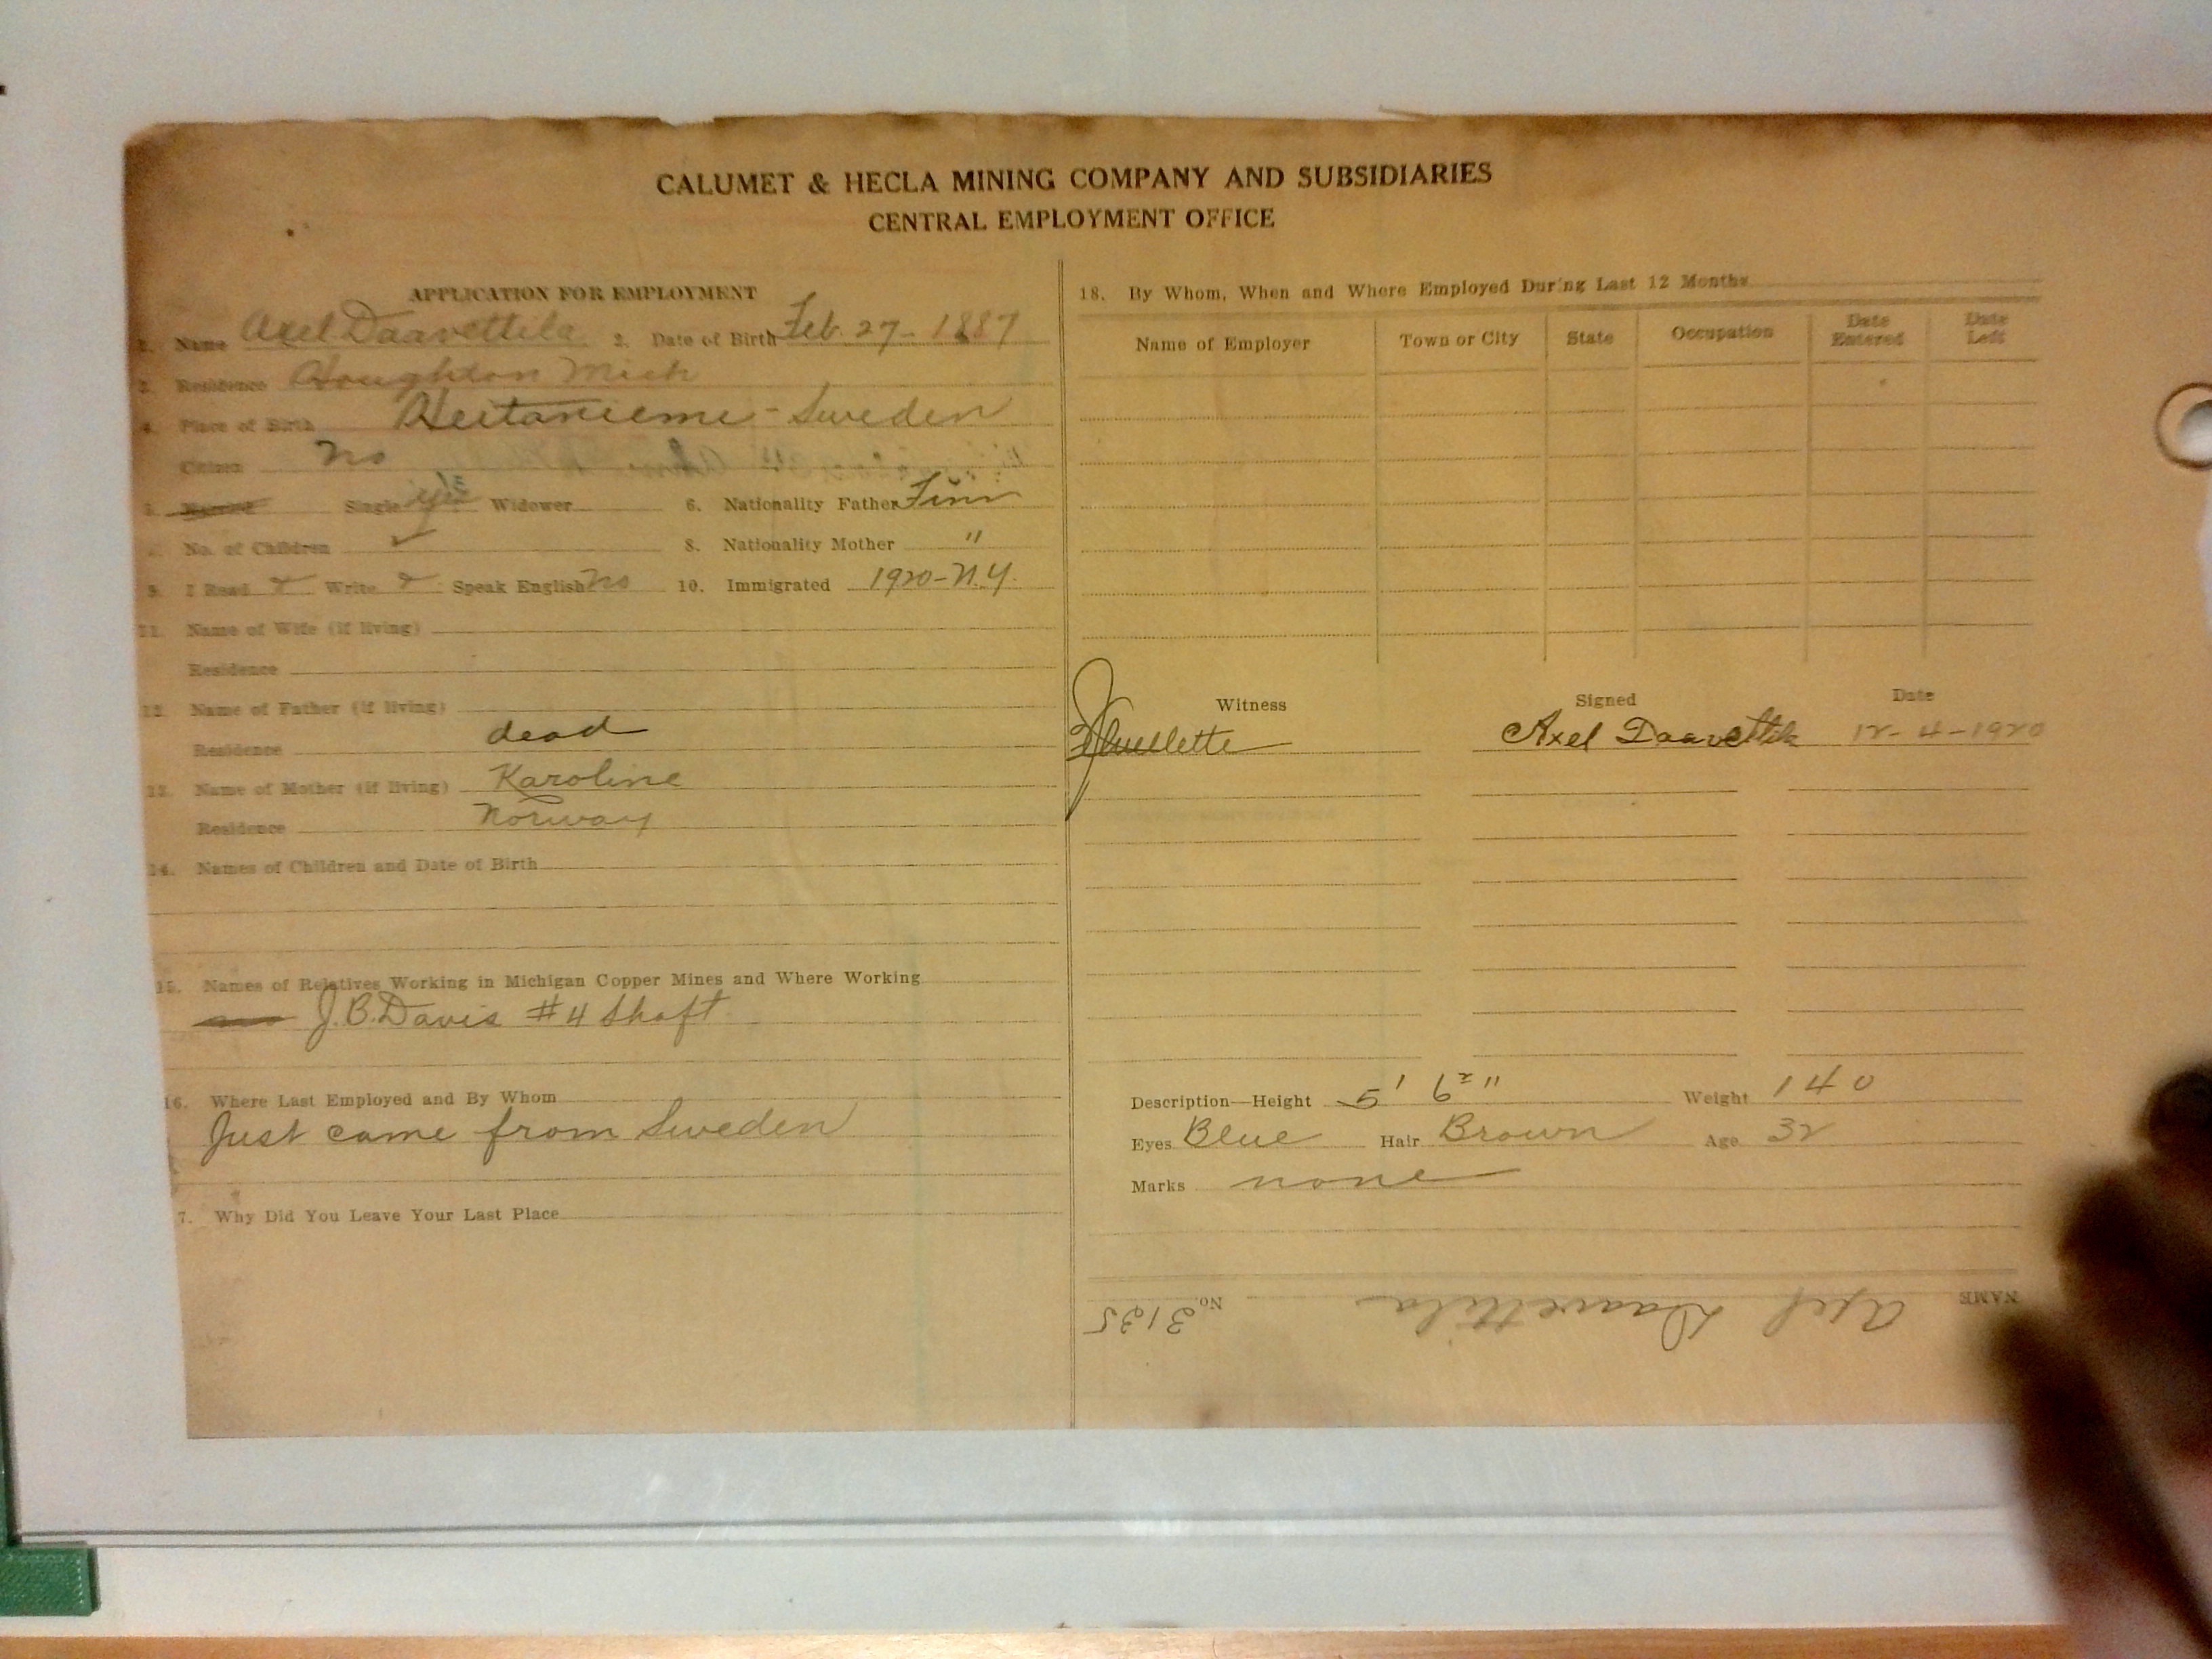 CALUMET & HECLA MINING COMPANY AND SUBSIDIARIES
CENTRAL EMPLOYMENT OFFICE
APPLICATION FOR EMPLOYMENT
1. Name Axel Daavettila 2. Date of Birth Feb. 27 - 1887
3. Residence Houghton Mich
4. Place of Birth Heitaniemi - Sweden
Citizen no
5. Married Single yes Widower 6. Nationality Father Finn
No. of Children ✓ 8. Nationality Mother "
9. I Read Write Speak English no 10. Immigrated 1920 - N.Y.
11. Name of Wife (if living)
Residence
12. Name of Father (if living)
Residence dead
13. Name of Mother (if living) Karoline
Residence Norway
14. Names of Children and Date of Birth
15. Names of Relatives Working in Michigan Copper Mines and Where Working
J.B. Davis #4 Shaft
16. Where Last Employed and By Whom
Just came from Sweden
7. Why Did You Leave Your Last Place
18. By Whom, When and Where Employed During Last 12 Months
Name of Employer Town or City State Occupation Date Entered Date Left
Witness Signed Date
Axel Daavettila 12-4-1920
Description—Height 5' 6 2" Weight 140
Eyes Blue Hair Brown Age 32
Marks none
NAME Axel Daavettila No. 3135